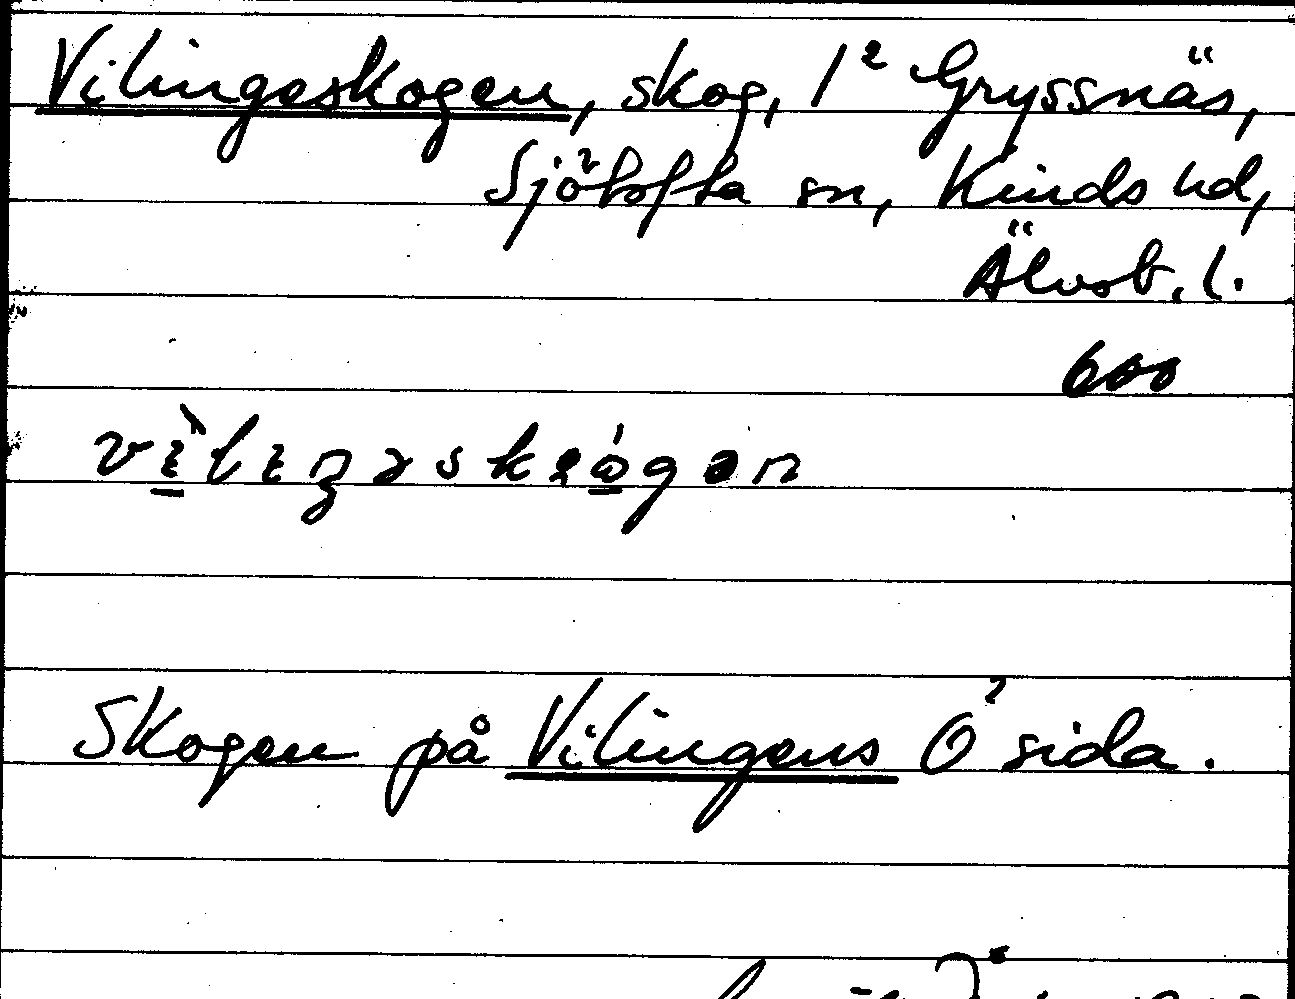 Vilingeskogen, skog, 1² Gryssnäs,
Sjötofta sn, Kinds hd,
Älvsb. l.
600
Skogen på Vilingens Ö sida.